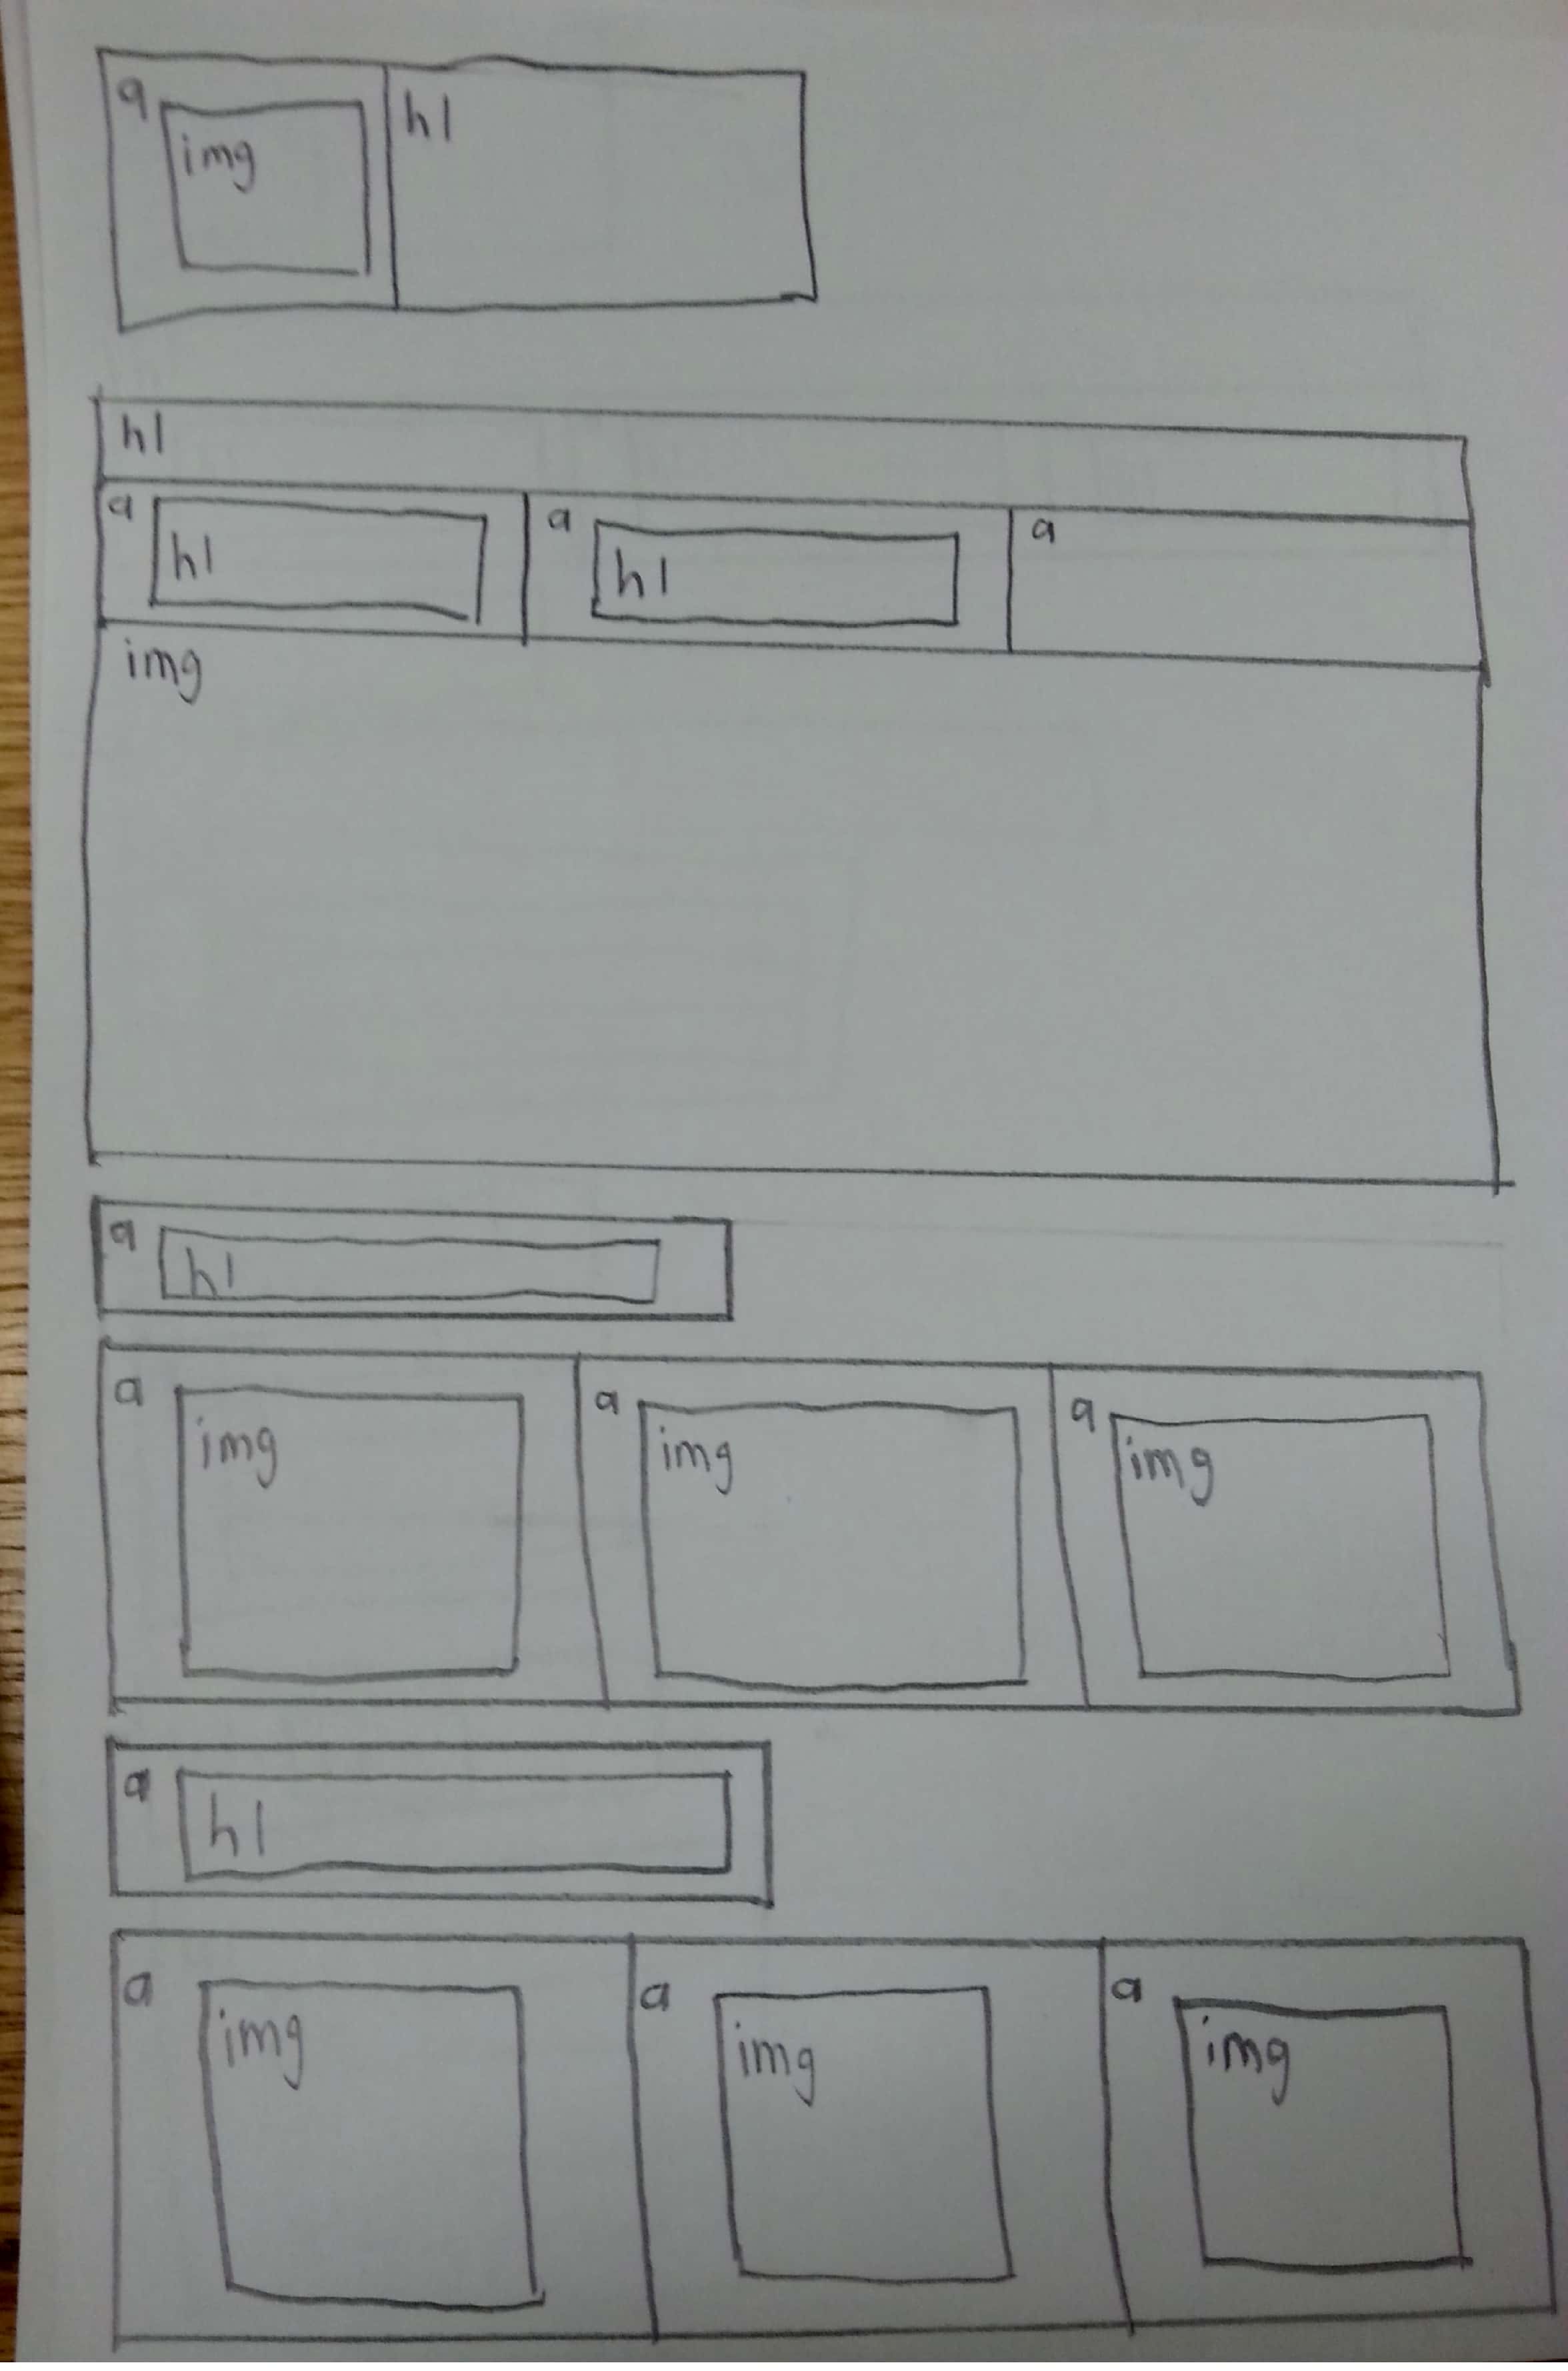 a img h1
h1
a h1 a h1 a
img
a h1
a img a img a img
a h1
a img a img a img